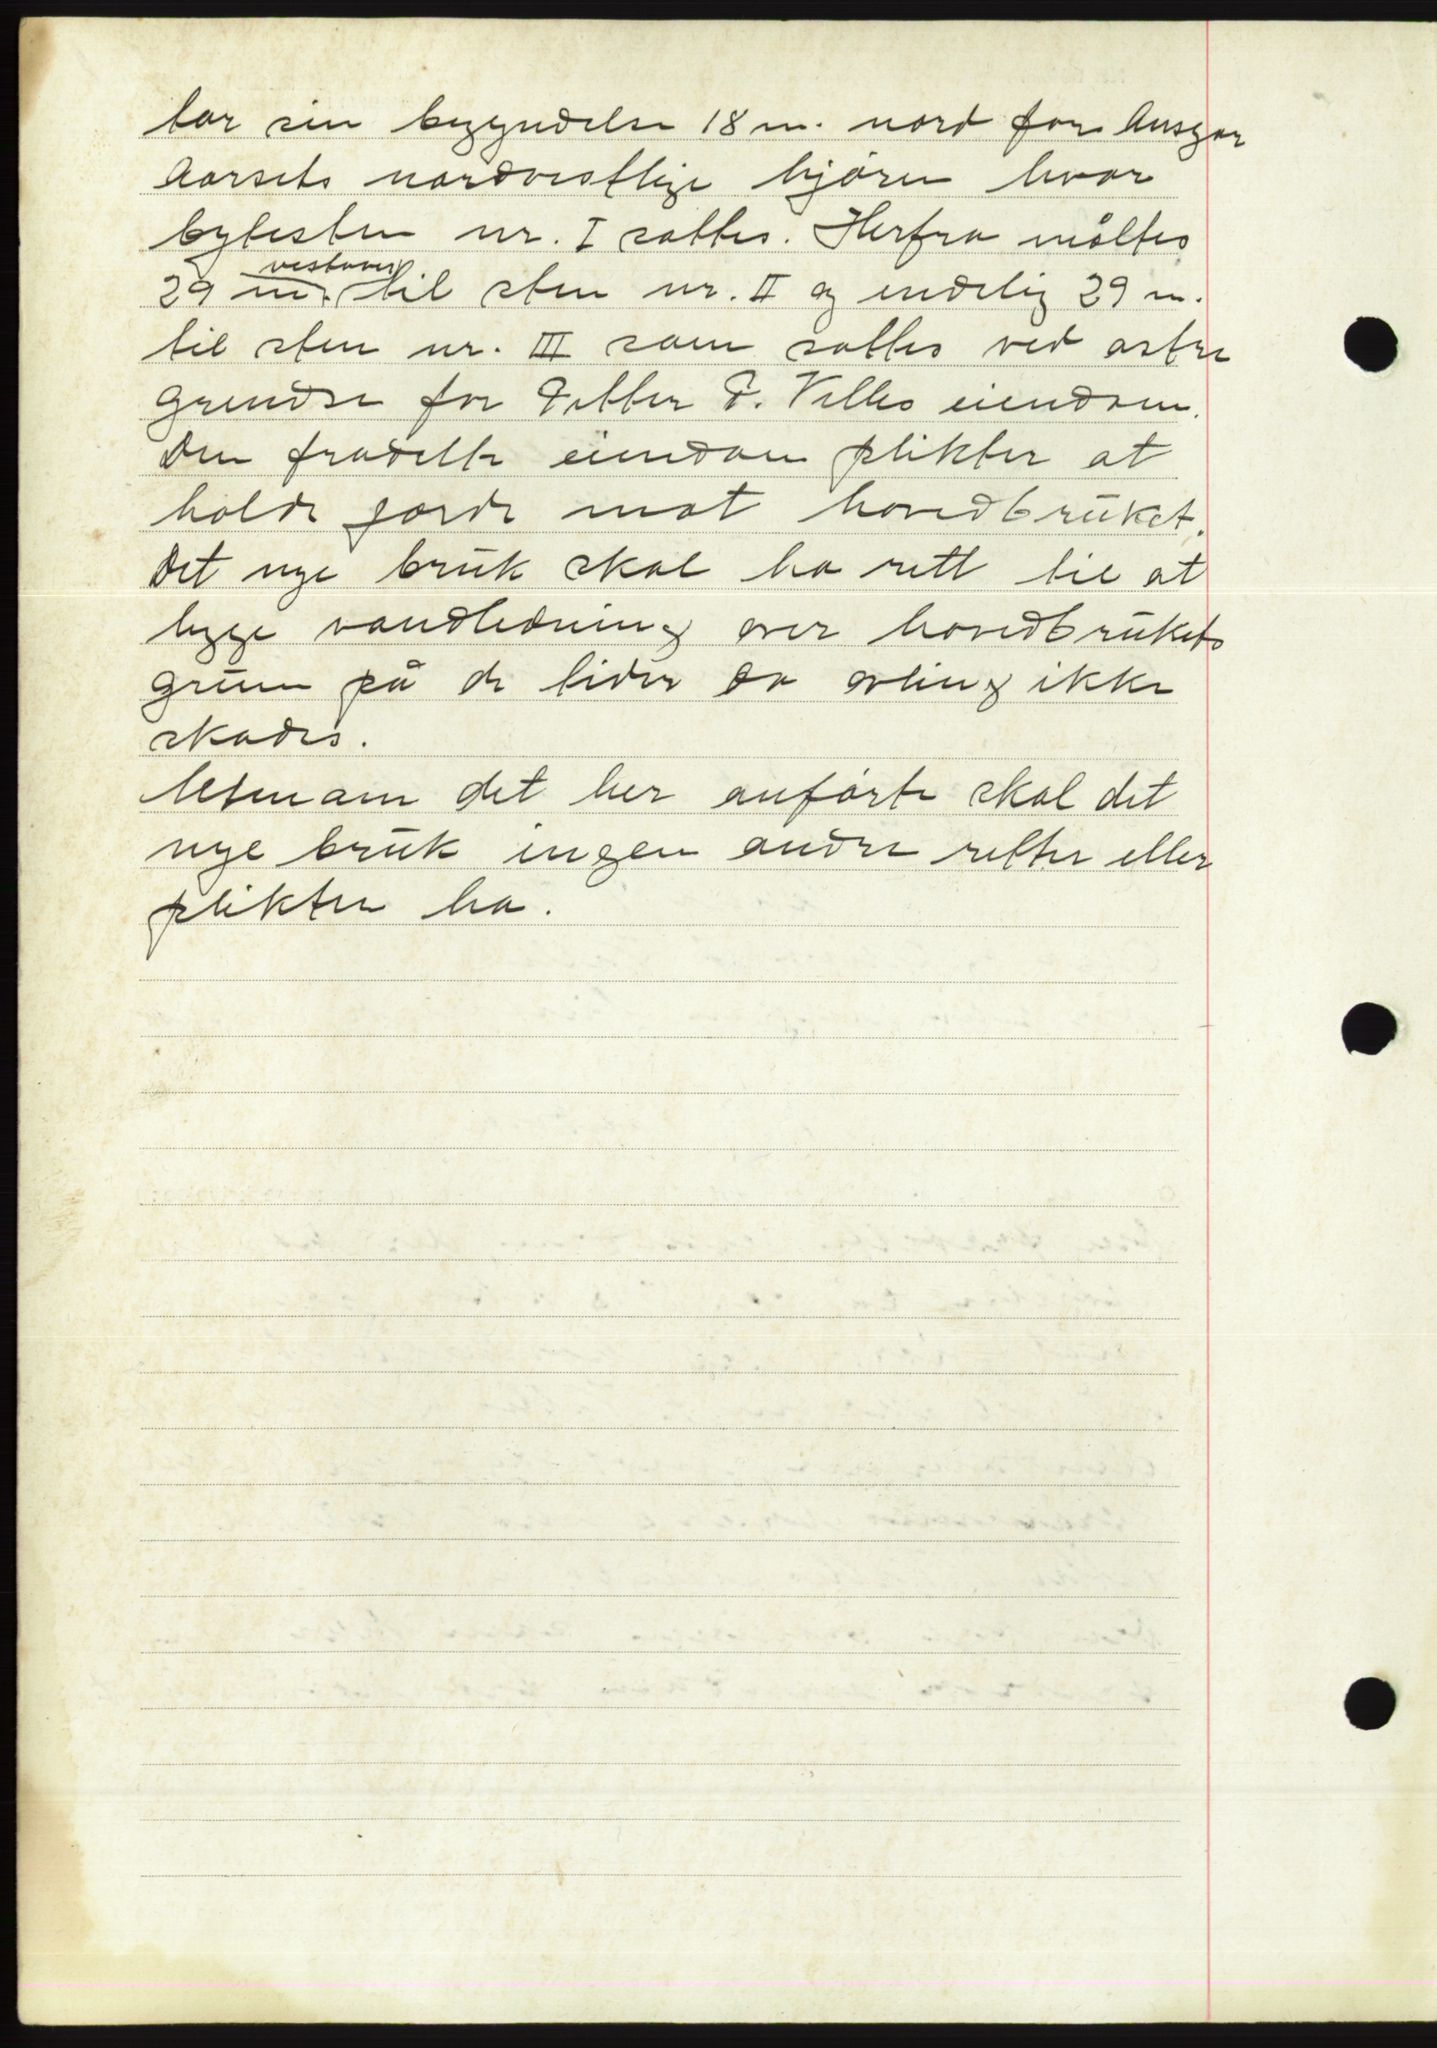 tar sin begyndelse 18 m. nord for Ansgar
Aarsets nordvestlige hjörne hvor
bytesten nr. I sattes. Herfra måltes
29 m. vestover til sten nr. II og endelig 29 m.
til sten nr. III som sattes ved östre
grendse for Petter P. Velles eiendom.
Den fradelte eiendom plikter at
holde gjerde mot hovedbrüket.
Det nye brük skal ha rett til at
legge vandledning over hovedbrükets
grünn på de tider da avling ikke
skades.
Utenom det her anförte skal det
nye brük ingen andre retter eller
plikter ha.